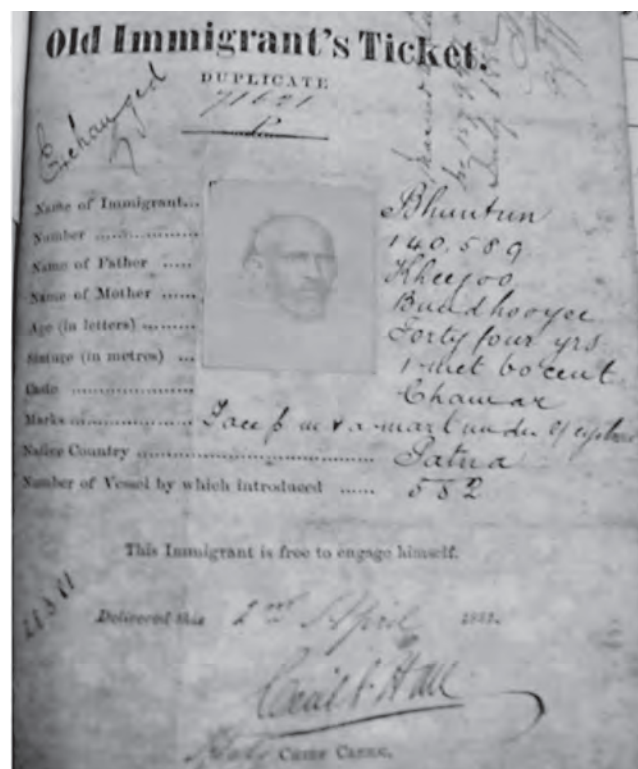 Old Immigrant's Ticket.
DUPLICATE
71621
P
Exchanged
Name of Immigrant... Bhuntun
Number .................. 140.589
Name of Father ..... Kheejoo
Name of Mother ...... Bundhooyee
Age (in letters) ......... Forty four yrs
Stature (in metres) ... 1 met 60 cent
Caste ..................... Chamar
Marks ..................... Face p m & a mark under
Native Country .......................................... Patna
Number of Vessel by which introduced ...... 552
This Immigrant is free to engage himself.
Delivered this 2nd April
CHIEF CLERK.